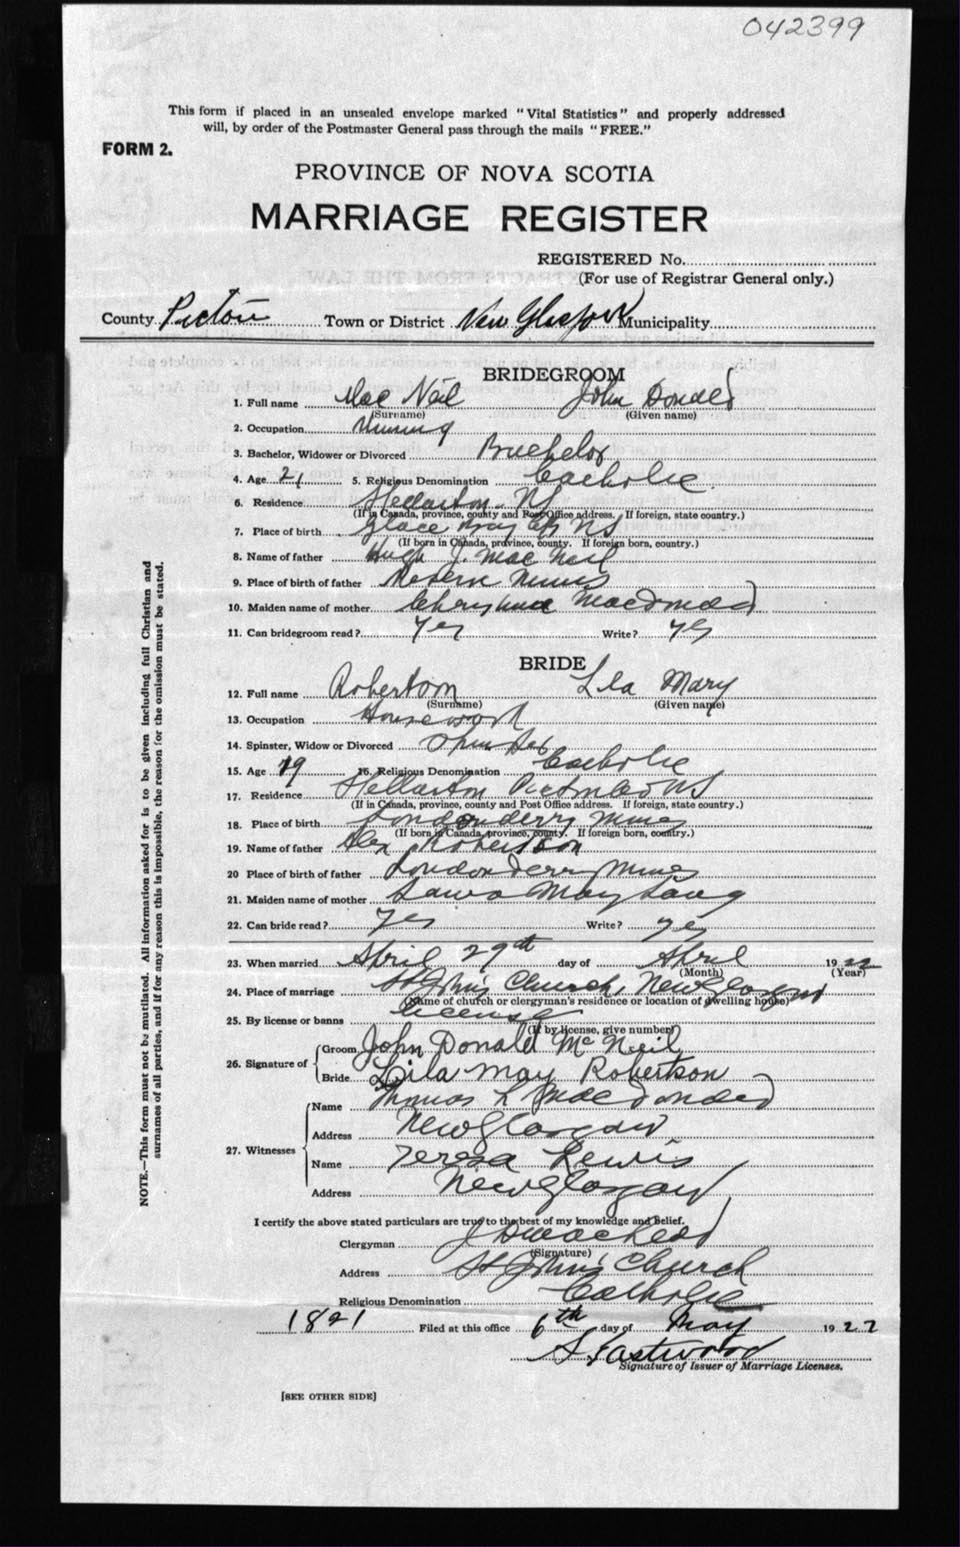 042399
This form if placed in an unsealed envelope marked "Vital Statistics" and properly addressed
will, by order of the Postmaster General pass through the mails "FREE."
FORM 2.
PROVINCE OF NOVA SCOTIA
MARRIAGE REGISTER
REGISTERED No.
(For use of Registrar General only.)
County Pictou Town or District New Glasgow Municipality
BRIDEGROOM
1. Full name Mac Neil John Donald
(Surname) (Given name)
2. Occupation Mining
3. Bachelor, Widower or Divorced Bachelor
4. Age 21 5. Religious Denomination Catholic
6. Residence Stellarton NS
(If in Canada, province, county and Post Office address. If foreign, state country.)
7. Place of birth Glace Bay CB NS
(If born in Canada, province, county. If foreign born, country.)
8. Name of father Hugh J. Mac Neil
9. Place of birth of father Mines
10. Maiden name of mother Macdonald
11. Can bridegroom read? Yes Write? Yes
BRIDE
12. Full name Robertson Lila Mary
(Surname) (Given name)
13. Occupation Housework
14. Spinster, Widow or Divorced Spinster
15. Age 19 16. Religious Denomination Catholic
17. Residence Stellarton Pictou Co NS
(If in Canada, province, county and Post Office address. If foreign, state country.)
18. Place of birth Londonderry Mines
(If born in Canada, province, county. If foreign born, country.)
19. Name of father Alex Robertson
20 Place of birth of father Londonderry Mines
21. Maiden name of mother May
22. Can bride read? Yes Write? Yes
23. When married April 29th day of April 1922
(Month) (Year)
24. Place of marriage St John's Church, New Glasgow
(Name of church or clergyman's residence or location of dwelling house)
25. By license or banns license
(If by license, give number)
26. Signature of Groom John Donald McNeil
Bride Lila May Robertson
27. Witnesses Name Thomas L Macdonald
Address New Glasgow
Name Teresa Lewis
Address New Glasgow
I certify the above stated particulars are true to the best of my knowledge and belief.
Clergyman J D MacLeod
(Signature)
Address St John's Church
Religious Denomination Catholic
1821 Filed at this office 6th day of May 1922
S Eastwood
Signature of Issuer of Marriage Licenses.
[SEE OTHER SIDE]
NOTE.—This form must not be mutilated. All information asked for is to be given including full Christian and
surnames of all parties, and if for any reason this is impossible, the reason for the omission must be stated.